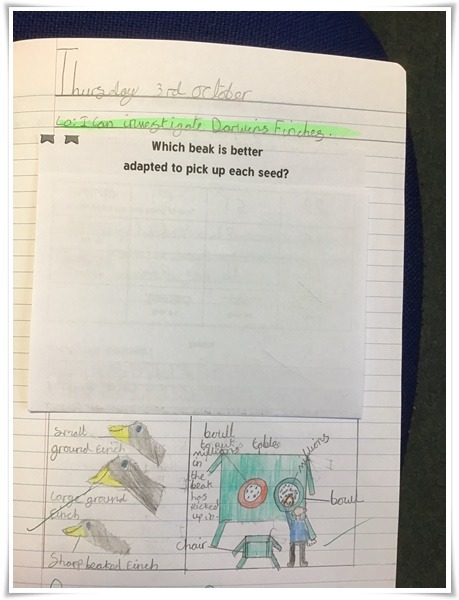 Thursday 3rd October
Lo: I can investigate Darwins Finches.
Which beak is better
adapted to pick up each seed?
Small
ground finch
Large ground
finch
Sharp beaked finch
bowl
to put
in
the
beak
has
picked
up in.
table
bowl
chair